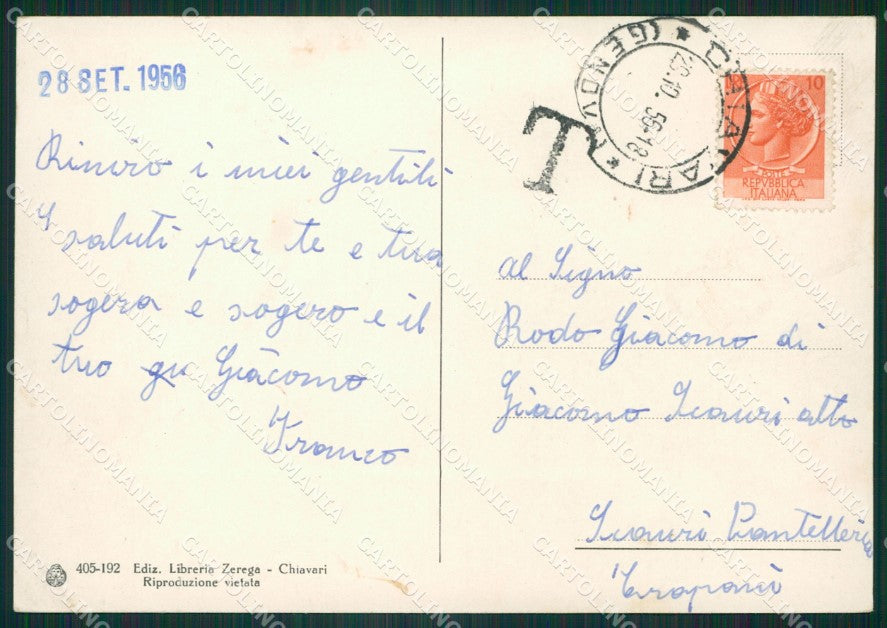 28 SET. 1956
Rinvio i miei gentili
saluti per te e tua
sogera e sogero e il
tuo Giacomo
Franco
405-192 Ediz. Libreria Zerega - Chiavari
Riproduzione vietata
T
CHIAVARI * (GENOVA) *
10
POSTE
REPVBBLICA
ITALIANA
al Signo
Rodo Giacomo di
Giacomo Scauri alto
Scauri Pantelleria
Trapani
CARTOLINOMANIA